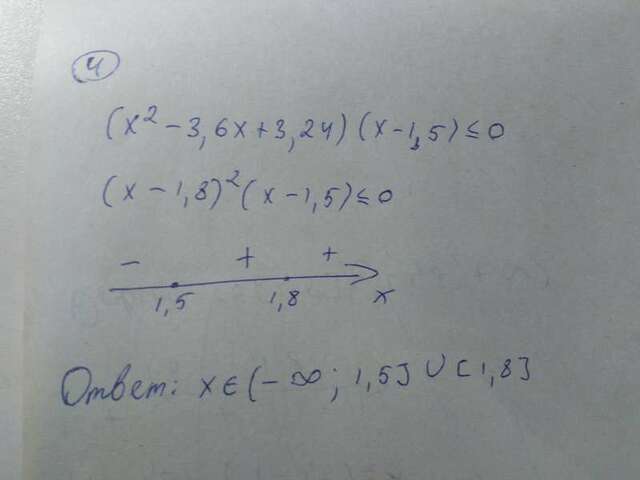 4
(x² - 3,6x + 3,24)(x - 1,5) ≤ 0
(x - 1,8)²(x - 1,5) ≤ 0
- + +
1,5 1,8 x
Ответ: x ∈ (-∞; 1,5] ∪ [1,8]